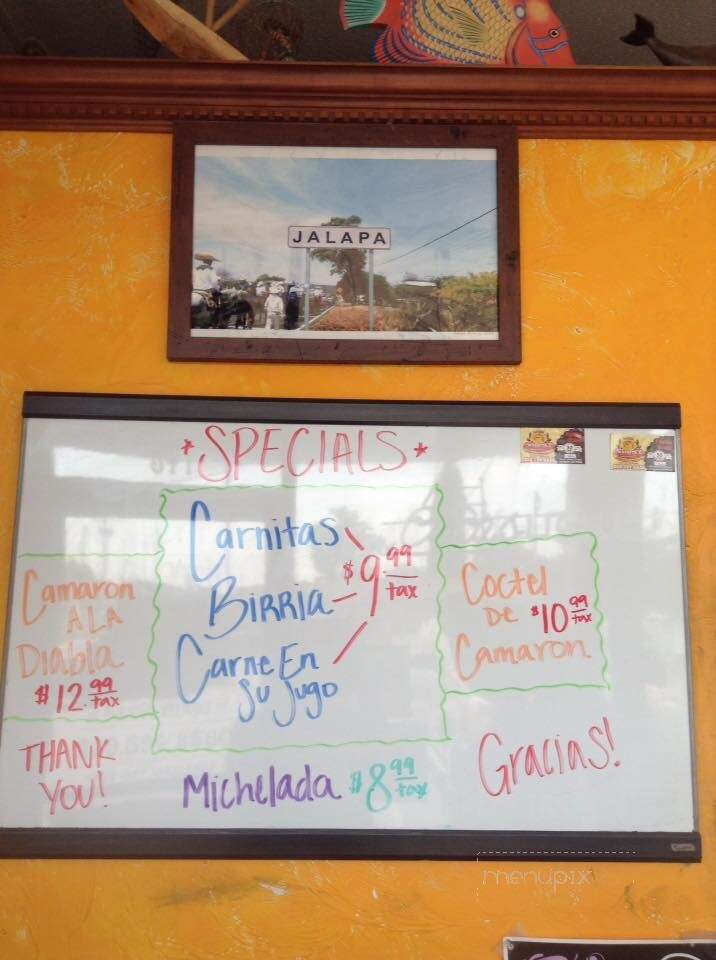 JALAPA
*SPECIALS*
Carnitas
Birria
Carne En
Su Jugo
$9.99
tax
Camaron
A LA
Diabla
$12.99
tax
Coctel
De
Camaron
$10.99
tax
THANK
YOU!
Michelada $8.99
tax
Gracias!
menupix